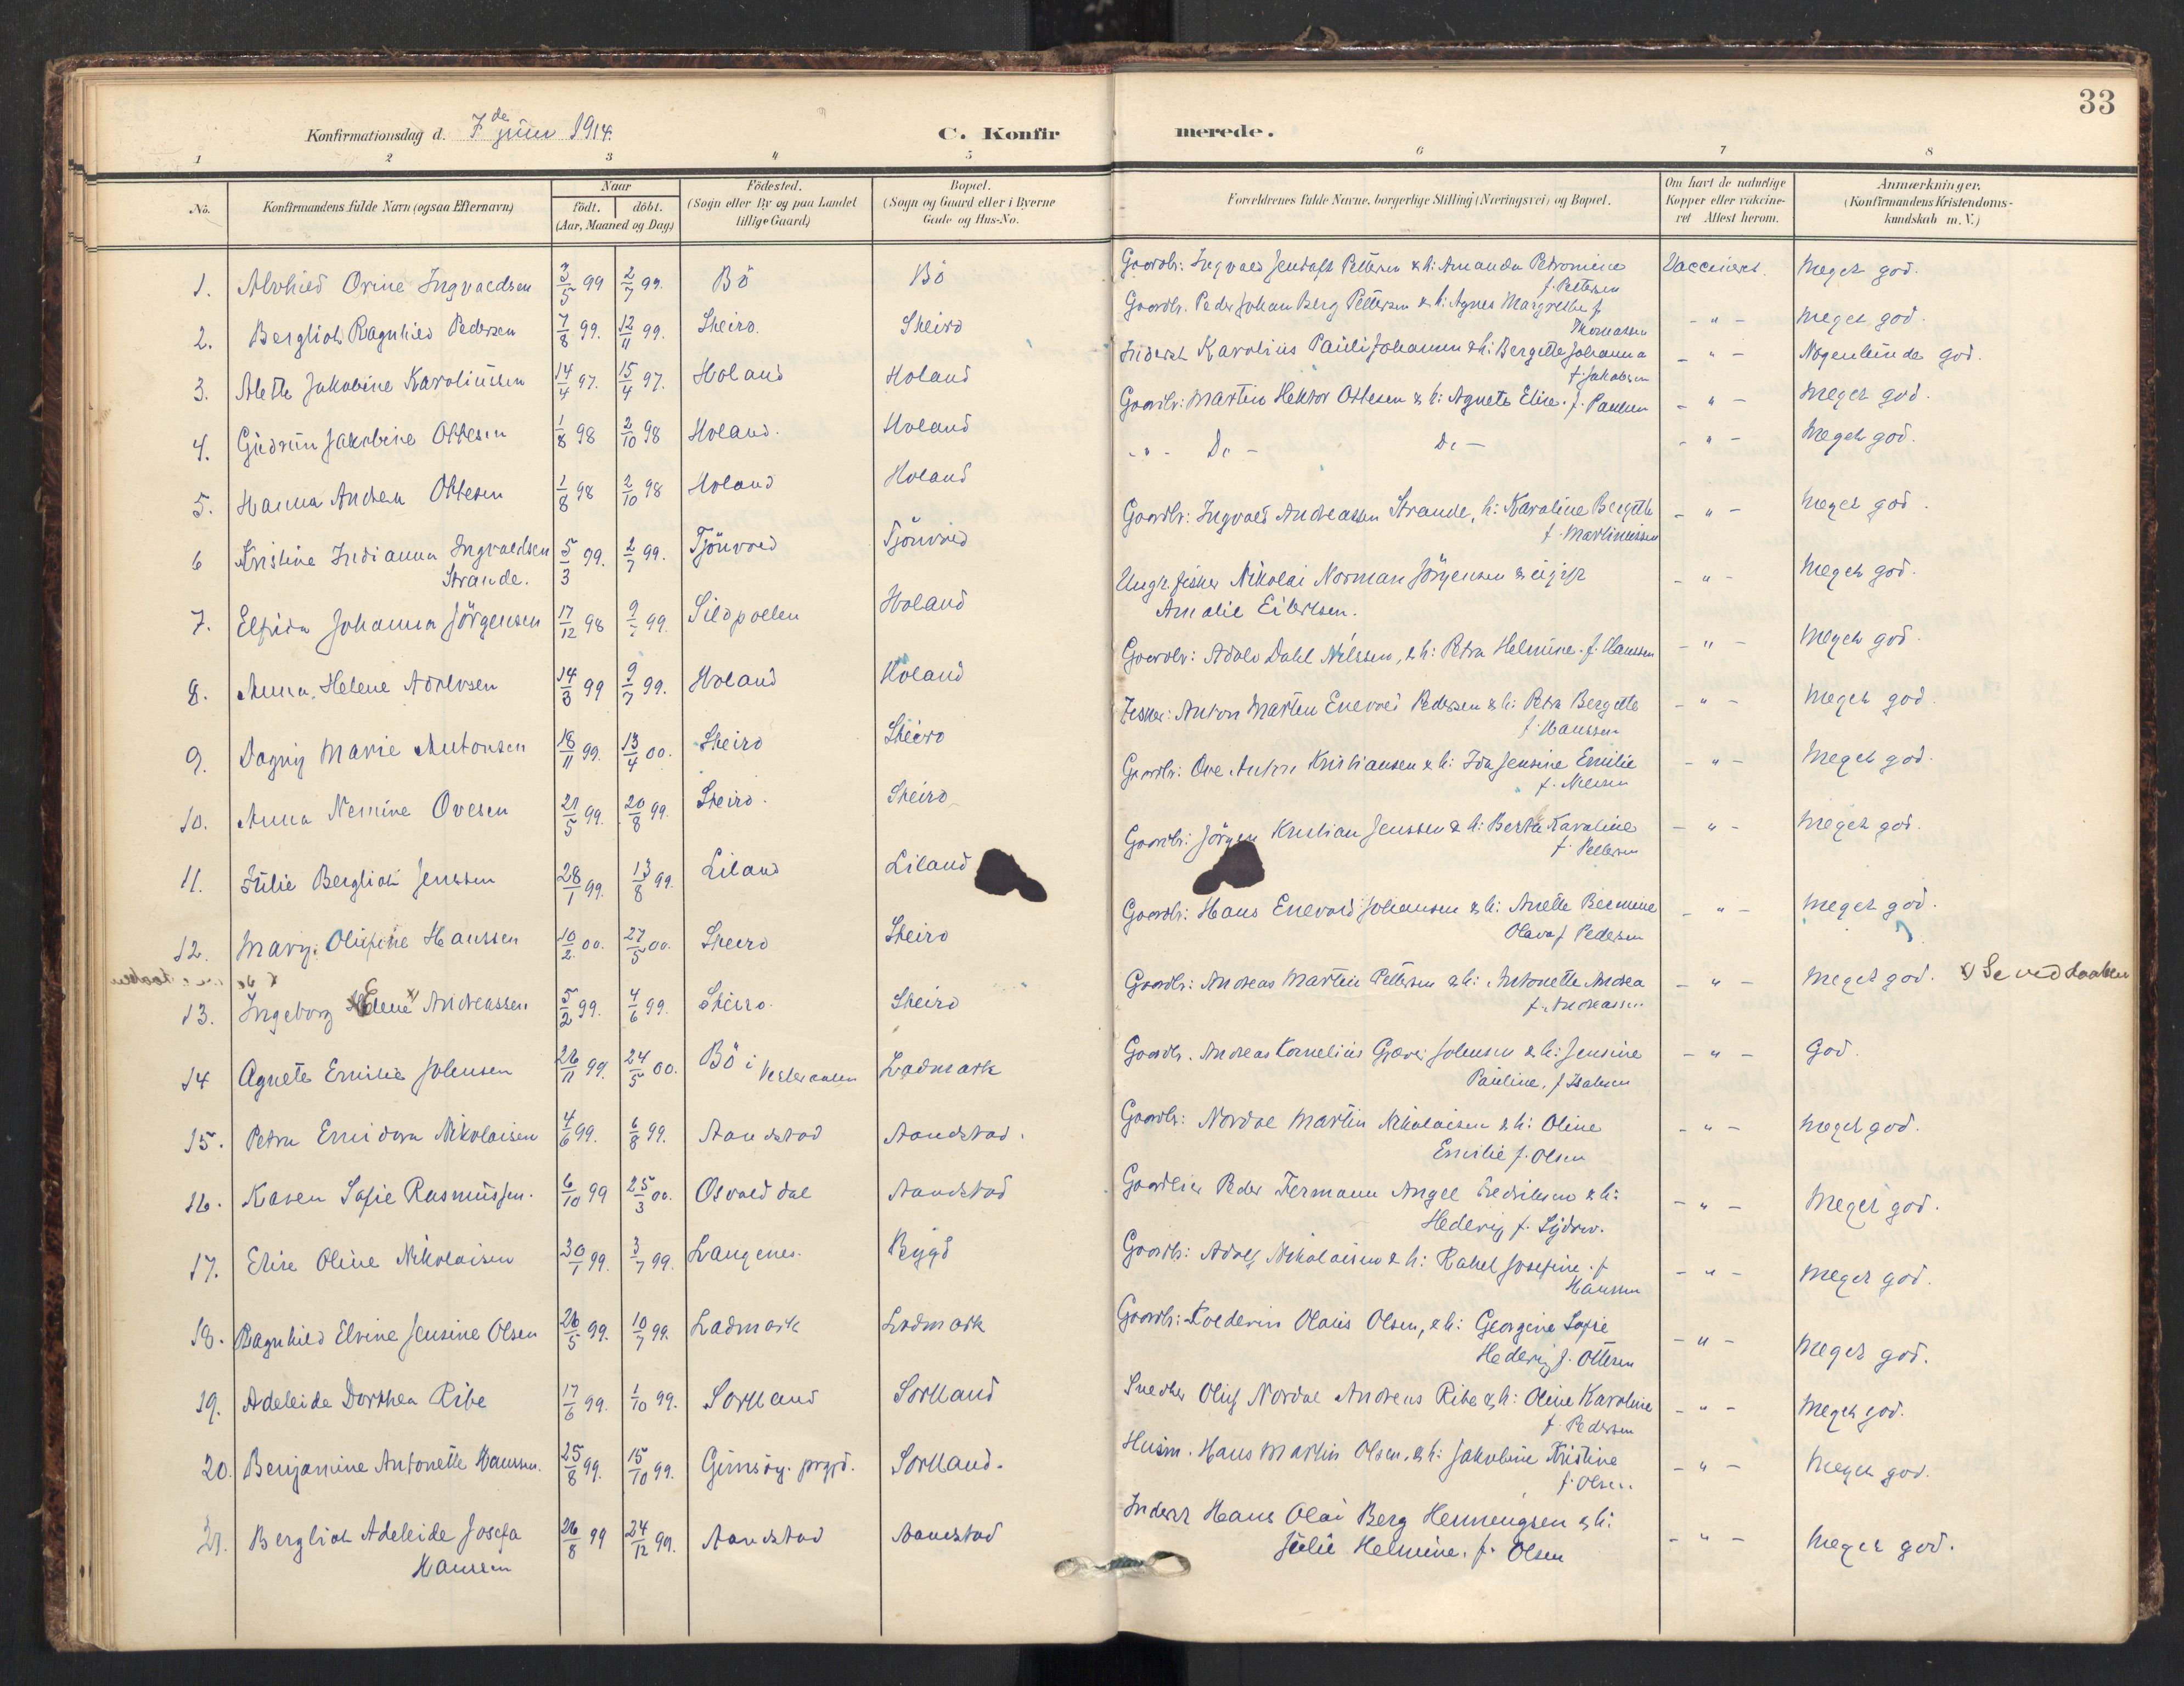 33
Konfirmationsdag d. 7de juni 1914.
C. Konfirmerede.
1 2 3 4 5 6 7 8
No. Konfirmandens fulde Navn (ogsaa Efternavn) Naar födt. döbt. (Aar, Maaned og Dag) Födested. (Sogn eller By og paa Landet tillige Gaard) Bopæl. (Sogn og Gaard eller i Byerne Gade og Hus-No. Forældrenes fulde Navne, borgerlige Stilling (Næringsvei) og Bopæl. Om havt de naturlige Kopper eller vakcineret Attest herom. Anmærkninger. (Konfirmandens Kristendomskundskab m. V.)
1. Alvhild Orine Ingvaldsen 3/5 99 2/7 99. Bö Bö Gaardbr: Ingvald Pettersen & h: Amanda Petromine f. Pettersen Vaccineret. Meget god.
2. Bergliot Ragnhild Pedersen 7/8 99. 12/11 99. Skeiro. Skeiro Gaardbr. Peder Johan Berg Pettersen & h: Agnes Margrethe f Thomassen - " - Meget god.
3. Alette Jakobine Karoliussen 14/4 97. 15/4 97. Holand Holand Inderst Karolius Pauli Johansen & h: Bergette Johanna f. Jakobsen - " - Nogenlunde god.
4. Gudrun Jakobine Ottesen 1/8 98 2/10 98 Holand. Holand Gaardbr: Martin Hektor Ottesen & h: Agnete Elise f. Paulsen - " - Meget god.
5. Hanna Andrea Ottesen 1/8 98 2/10 98 Holand Holand - " - Do - Do - - " - Meget god.
6 Kristine Indianna Ingvaldsen Strande. 5/3 99. 2/7 99. Tjönvold Tjönvold Gaardbr: Ingvald Andreassen Strande, h: Karoline Bergitte f. Martinussen - " - Meget god.
7. Elfrida Johanna Jörgensen 17/12 98 9/7 99. Sildpollen Holand Ungk. fisker Nikolai Norman Jörgensen & ugift Amalie Eilertsen. - " - Meget god.
8. Anna Helene Adolvsen 14/3 99 9/7 99. Holand Holand Gaardbr: Adolv Dahl Nilssen, & h: Petra Helmine f. Hanssen - " - Meget god.
9. Dagny Marie Antonsen 18/11 99. 13/4 00. Skeiro Skeiro Fisker: Anton Martin Enevold Pedersen & h: Petra Bergette f. Hanssen - " - Meget god.
10. Anna Nemine Ovesen 21/5 99. 20/8 99. Skeiro. Skeiro Gaardbr: Ove Anton Kristiansen & h: Ida Jensine Emilie f. Nilsen - " - Meget god.
11. Julie Bergliot Jenssen 28/1 99. 13/8 99. Liland Liland Gaardbr: Jörgen Kristian Jenssen & h: Berta Karoline f. Pettersen - " - Meget god.
12. Mary Olufine Hanssen 10/2 00. 27/5 00. Skeiro Skeiro Gaardbr: Hans Enevold Johansen & h: Anette Olava f Pedersen - " - Meget god.
13. Ingeborg Edene x) Andreassen 5/2 99. 4/6 99. Skeiro. Skeiro Gaardbr: Andreas Martin Pettersen & h: Antonette Andrea f. Andreassen - " - Meget god. x) Se ved daaben
14 Agnete Emilie Johnsen 26/11 99. 24/5 00. Bö i Vesteraalen Ladmark Gaardbr. Andreas Kornelius Johnsen & h: Jensine Pauline, f Isaksen - " - God.
15. Petra Emidora Nikolaisen 4/6 99. 6/8 99. Aandstad Aandstad. Gaardbr: Nordal Martin Nikolaisen & h: Oline Emilie f. Olsen - " - Meget god.
16. Karen Sofie Rasmussen. 6/10 99 25/3 00. Osvolddal Aandstad Peder Fermann Angel Fredriksen & h: Hedevig f. - " - Meget god.
17. Elise Oline Nikolaisen 30/1 99. 3/7 99. Langenes. Bygd Gaardbr: Adolf Nikolaisen & h: Rakel Josefine. f Hansen - " - Meget god.
18. Ragnhild Elvine Jensine Olsen 26/5 99. 10/7 99. Ladmark Ladmark Gaardbr: Olaus Olsen, & h: Georgine Sofie Hedevig f. Ottesen - " - Meget god.
19. Adeleide Dorthea Ribe 17/6 99. 1/10 99. Sortland Sortland Snedker Oluf Nordal Andreas Ribe & h: Oline Karoline f. Pedersen - " - Meget god.
20. Benjamine Antonette Hanssen. 25/8 99. 15/10 99. Gimsöy. prgjd. Sortland. Husm. Hans Martin Olsen. & h: Jakobine Kristine f. Olsen - " - Meget god.
21. Bergliot Adeleide Josefa Hansen 26/8 99 24/12 99. Aandstad Aandstad Inderst Hans Olai Berg Henningsen & h: Julie Helmine. f. Olsen - " - Meget god.